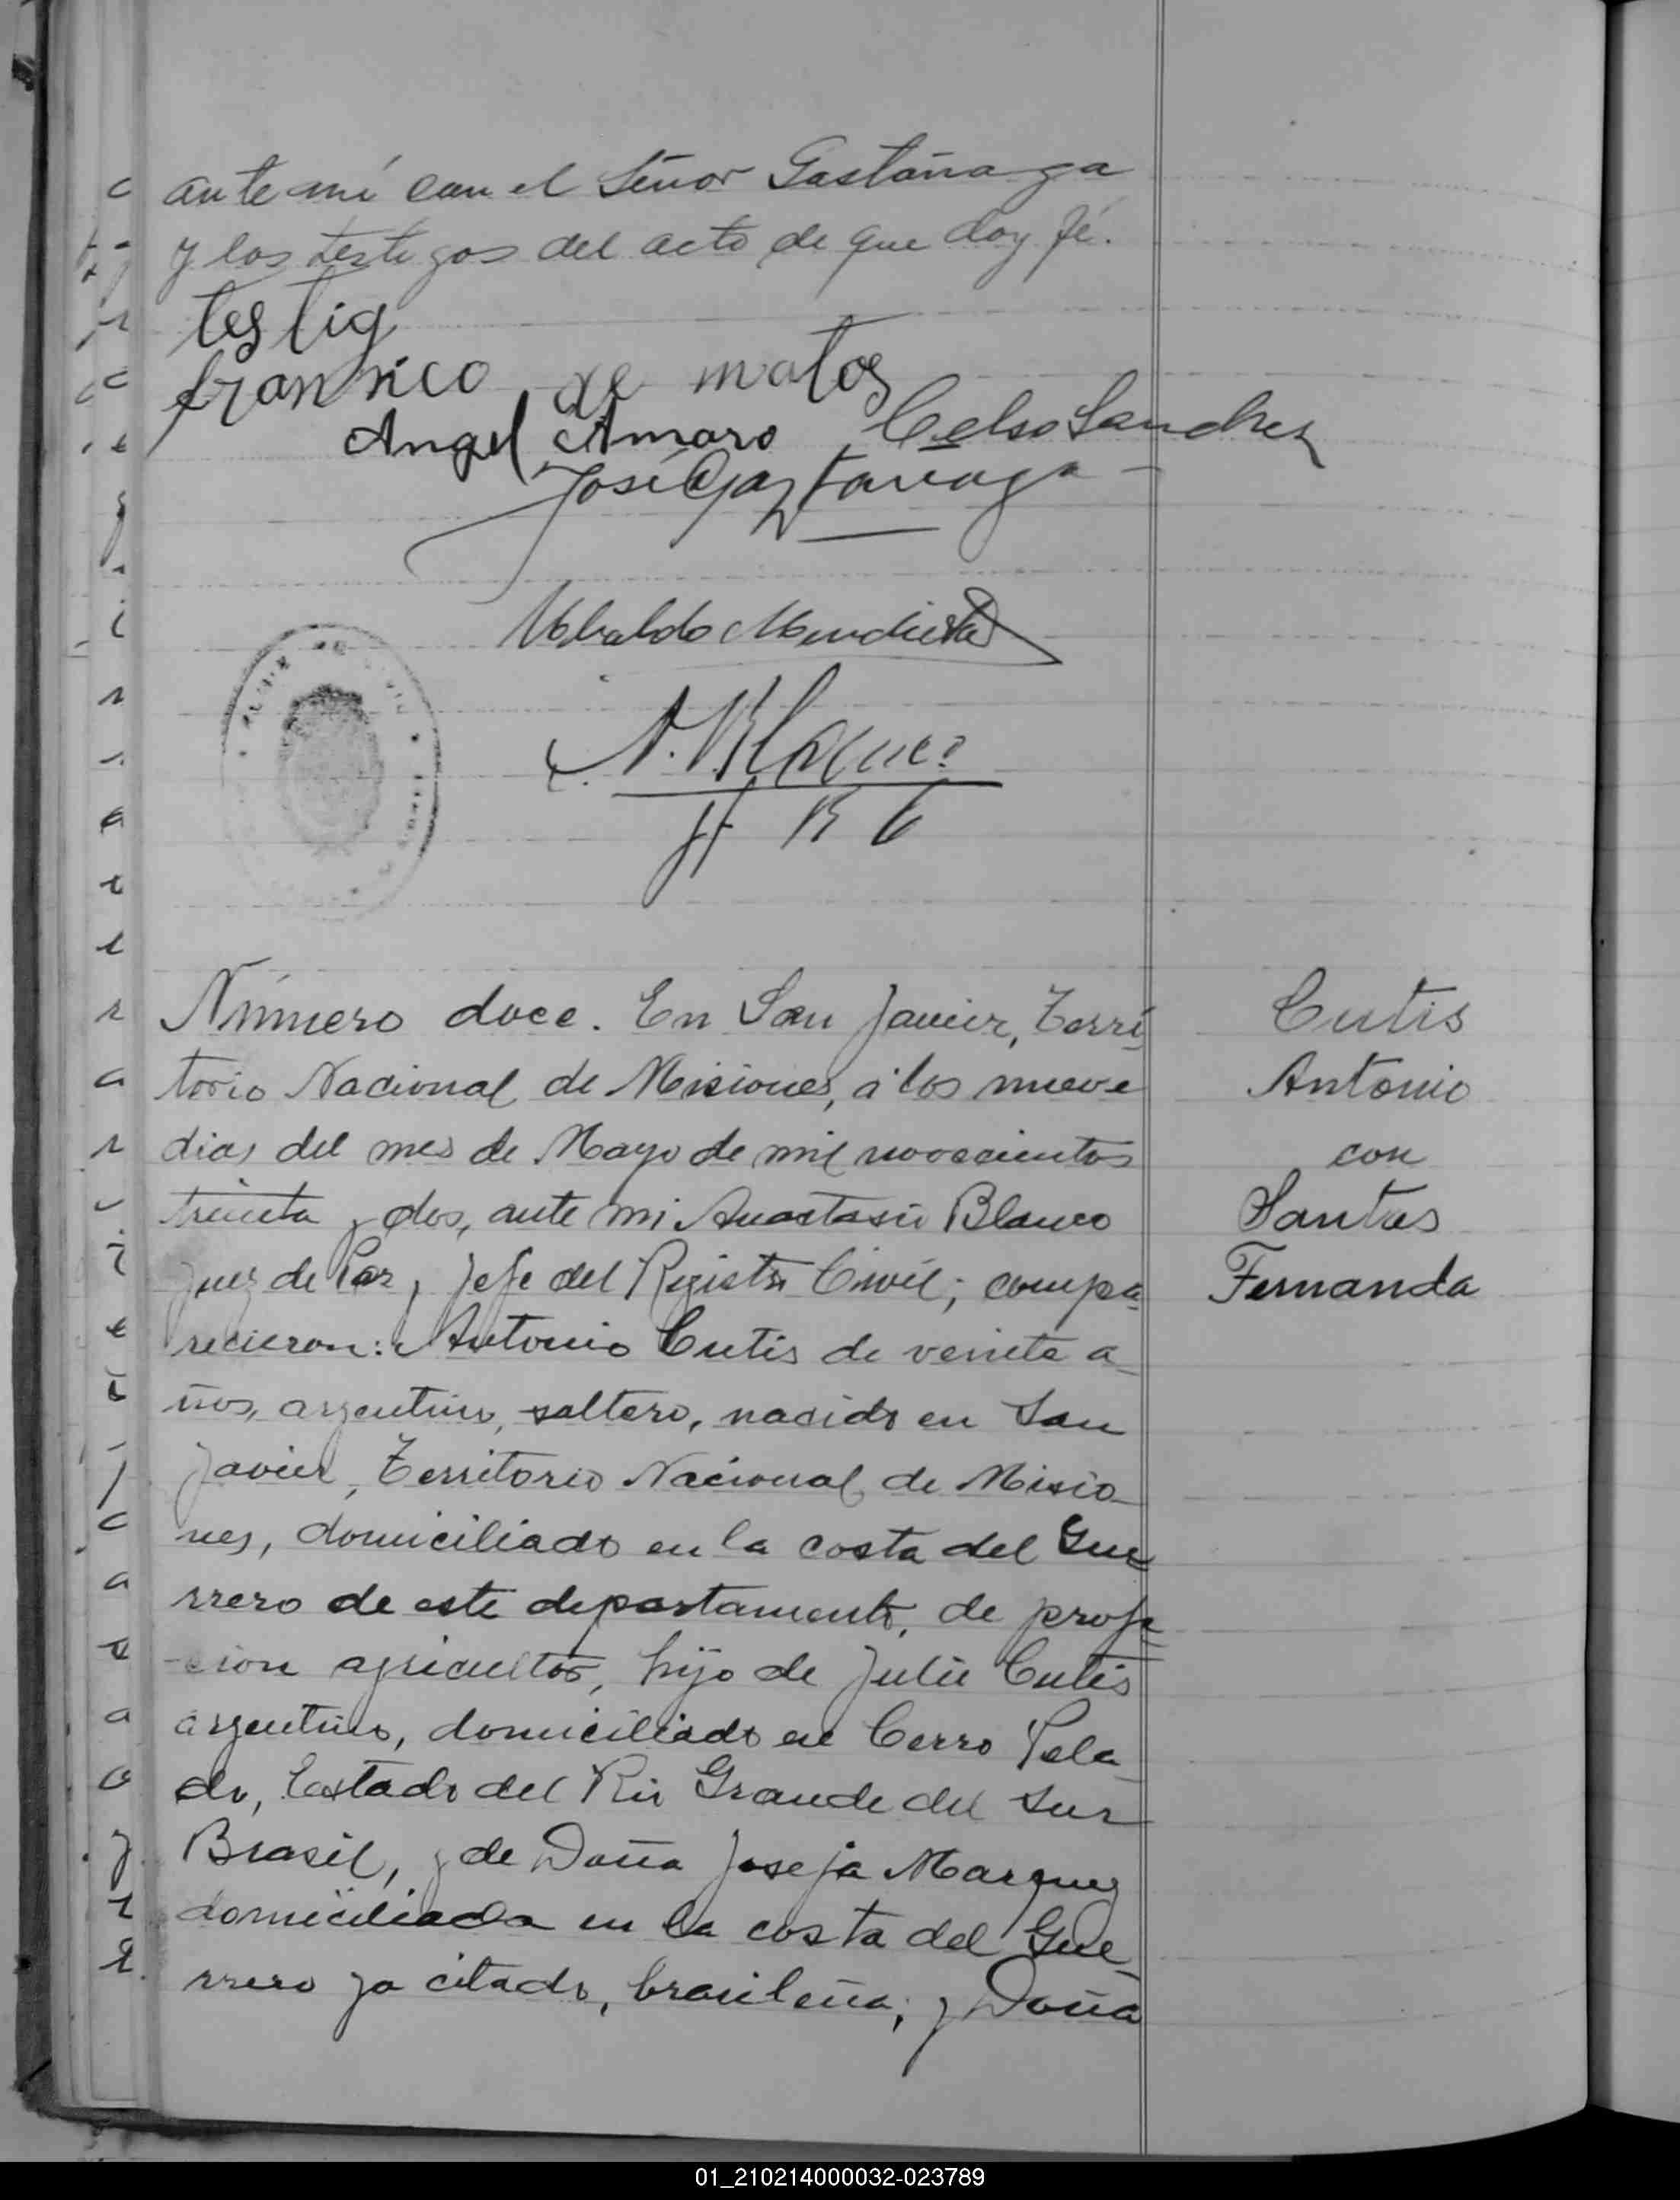 ante mí con el Señor Gastánaga
y los testigos del acto de que doy fé.
testig
fransico de matos
Angel Amaro Celso Sanchez
José Gaztanaga
Ubaldo Mendieta
A. Blanco
Número doce. En San Javier, Terri
Cutis
torio Nacional de Misiones, á los nueve
Antonio
dias del mes de Mayo de mil novecientos
con
treinta y dos, ante mi Anastasio Blanco
Santas
Juez de Paz y Jefe del Registro Civil; compa
Fernanda
recieron: Antonio Cutis de veinte a
ños, argentino, soltero, nacido en San
Javier, Territorio Nacional de Misio
nes, domiciliado en la costa del Gue
rrero de este departamento, de profe
cion agricultor, hijo de Julio Cutis
argentino, domiciliado en Cerro Pela
do, Estado del Rio Grande del Sur
Brasil, y de Doña Josefa Marquez
domiciliada en la costa del Gue
rrero ya citado, brasileña; y Doña
01_210214000032-023789